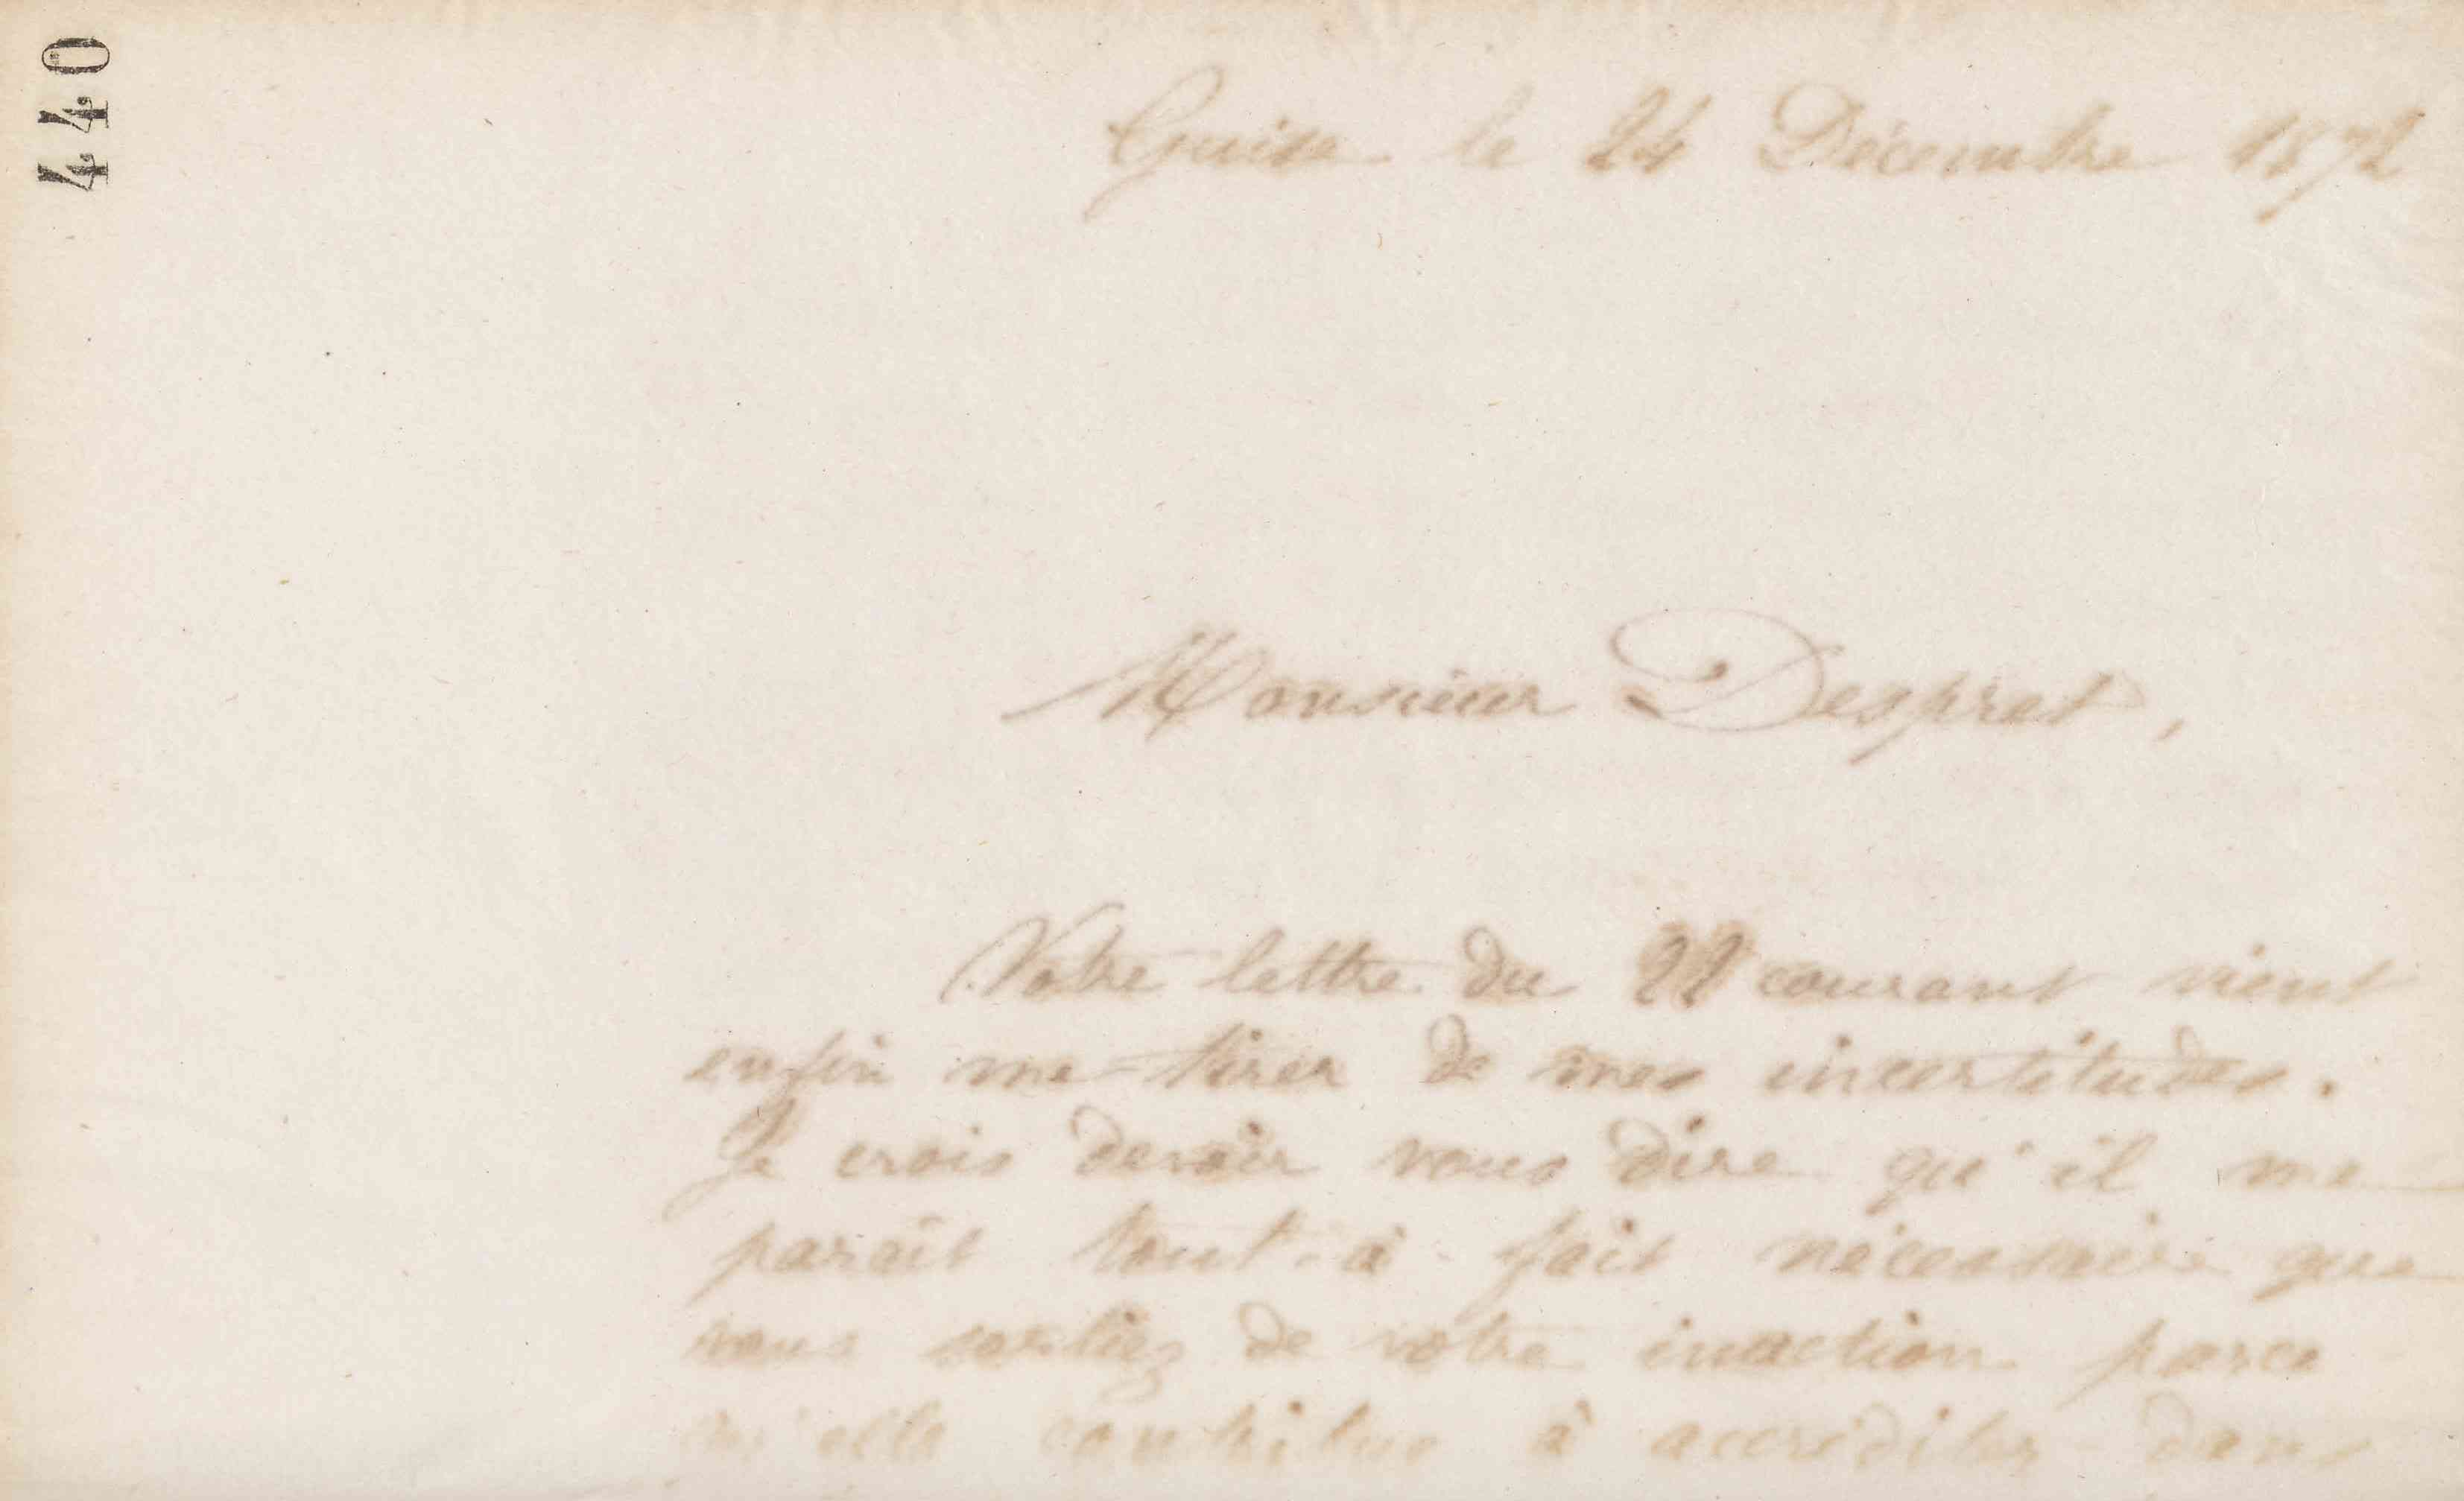 440
Guise le 24 Décembre 1872
Monsieur Desprat,
Votre lettre du 22 courant vient
enfin me tirer de mes incertitudes.
Je crois devoir vous dire qu'il me
paraît tout-à-fait nécessaire que
vous sortiez de votre inaction parce
qu'elle contribue à accréditer dans